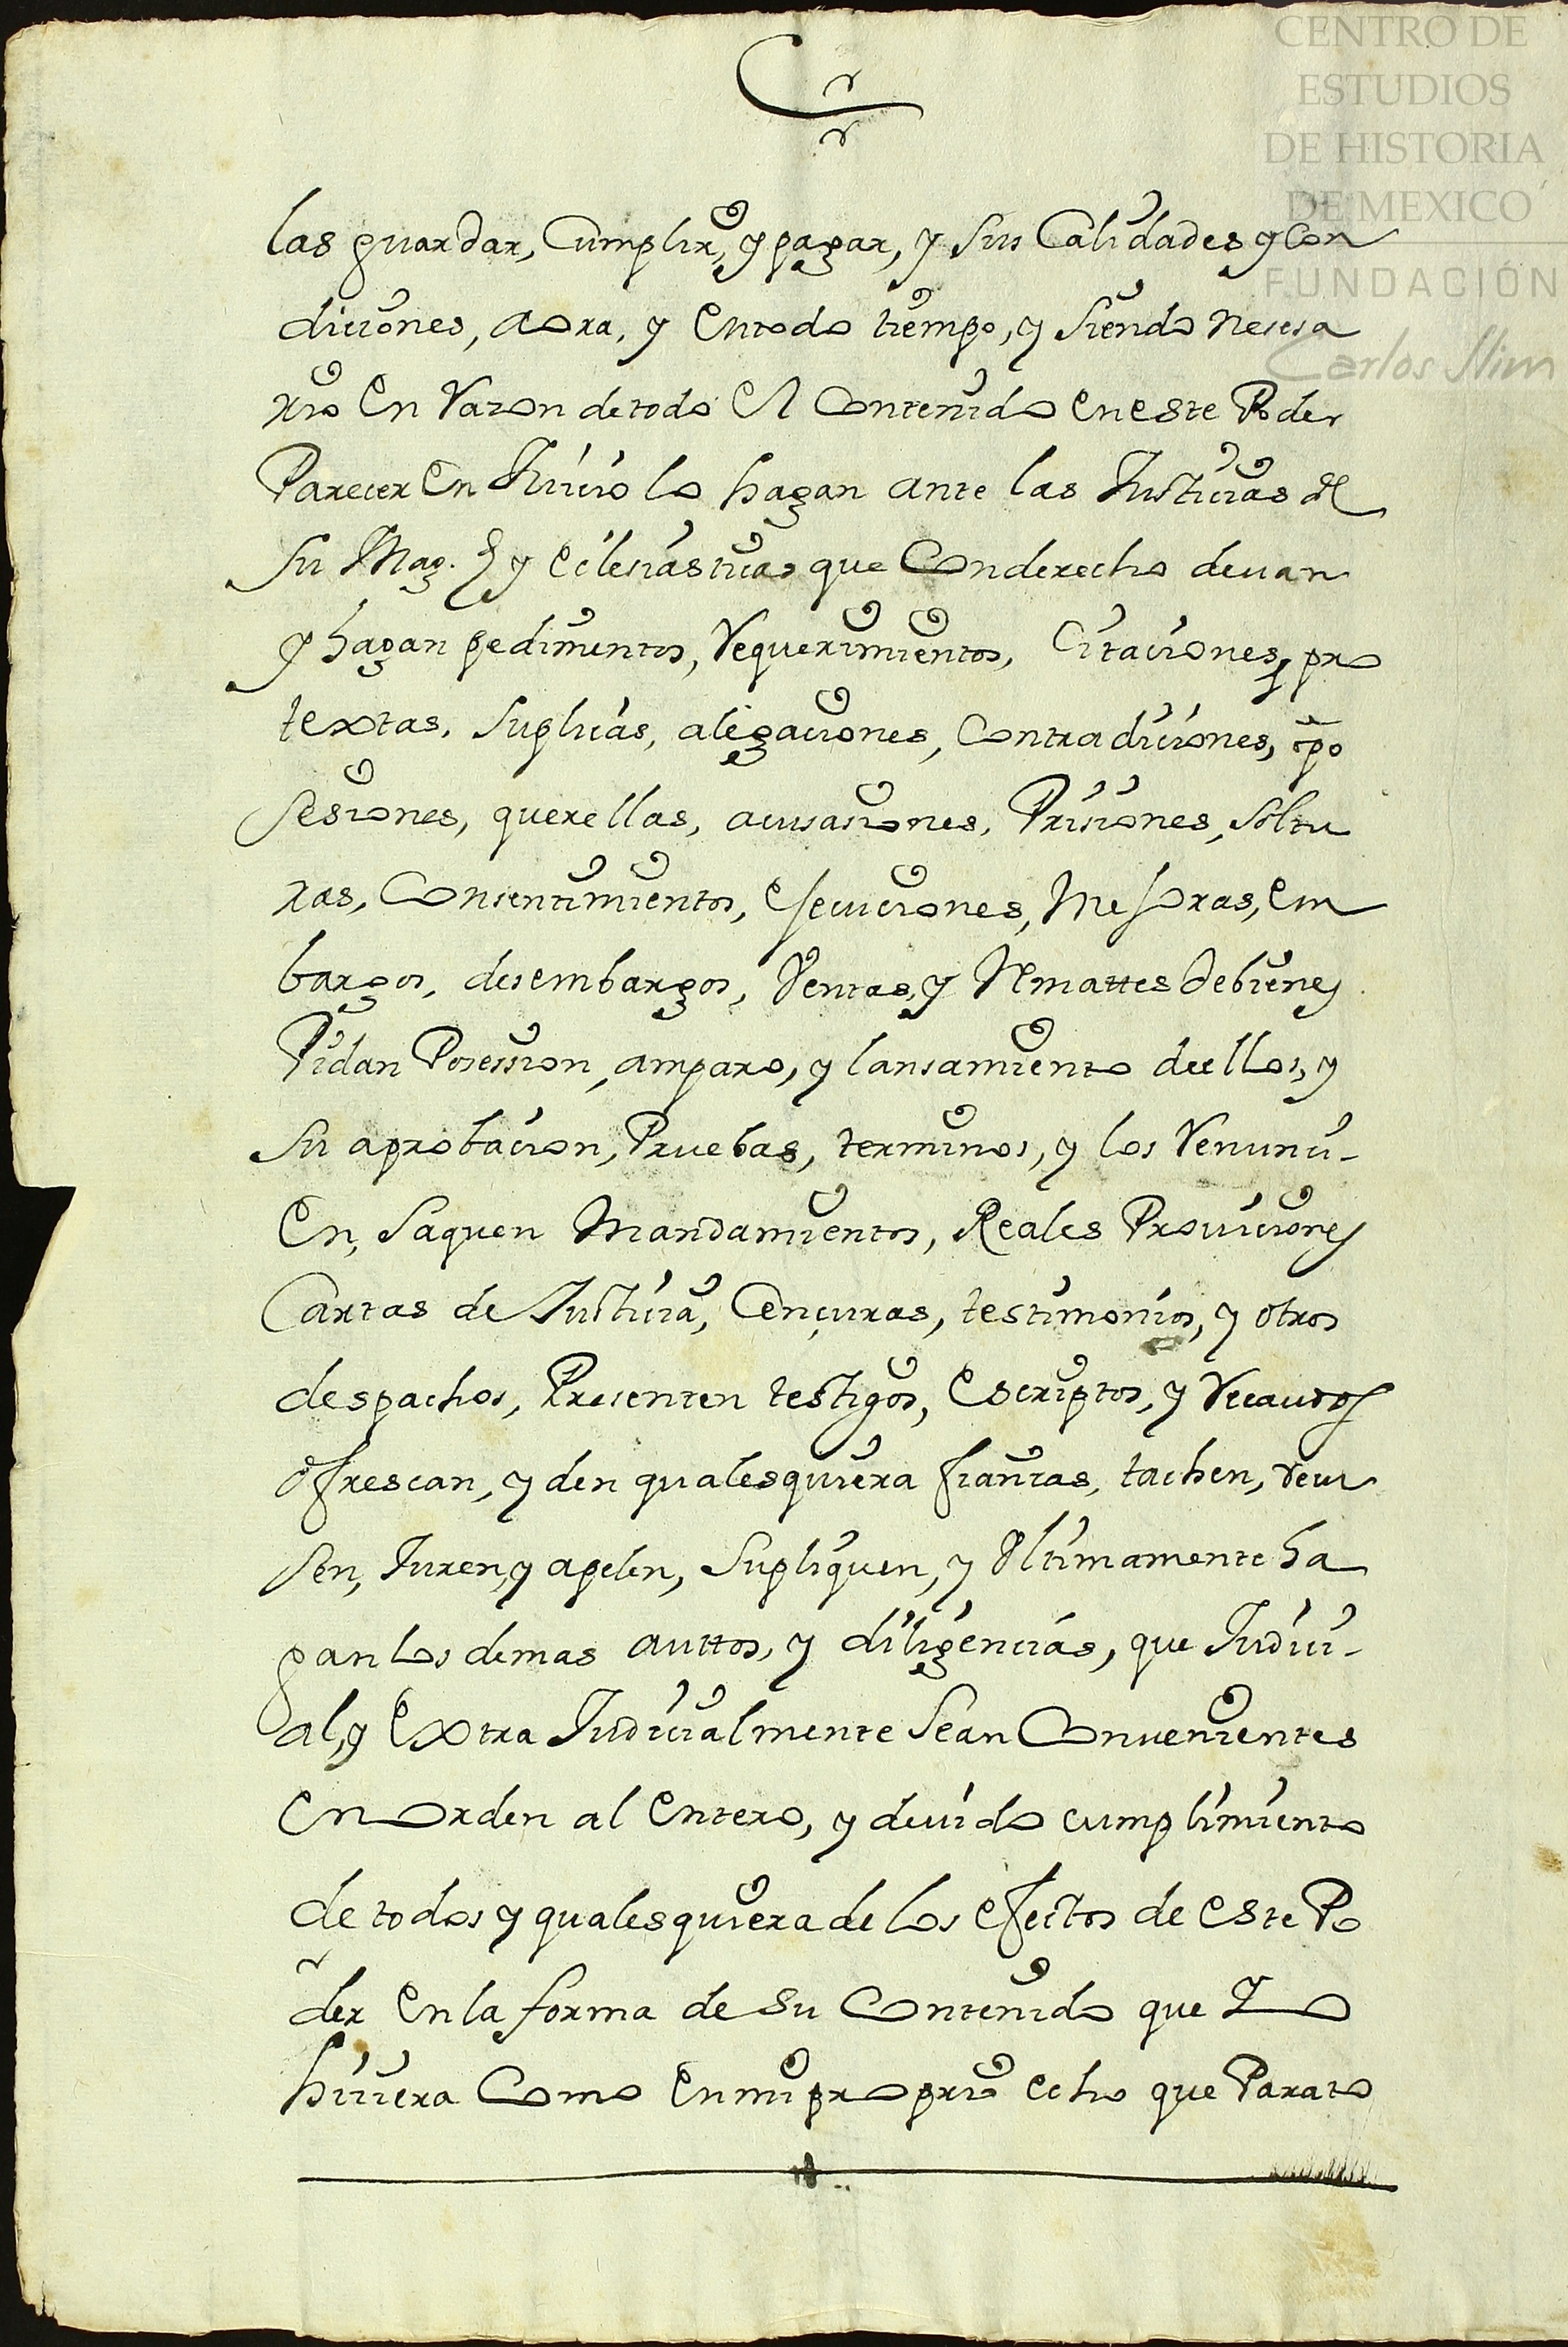 CENTRO DE
ESTUDIOS
DE HISTORIA
DE MEXICO
FUNDACIÓN
Carlos Slim
las guardar, Cumplir, y pagar, y sus Calidades y Con
diciones, aora, y En todo tiempo, y siendo nesesa
rio En Razon de todo El Contenido En este Poder
Parecer En Juicio lo hagan ante las Justicias de
su Mag.d y Eclesiasticas que Con derecho devan
y hagan pedimentos, Requerimientos, Citaciones, pro
textas, suplicas, alegaciones, Contradiciones, opo
sesiones, querellas, acusasiones, Prisiones, soltu
ras, Consentimientos, Execuciones, Mejoras, Em
bargos, desembargos, Ventas, y Remattes de bienes
Pidan Posession, amparo, y lansamiento de ellos, y
su aprobacion, Pruebas, terminos, y los Renunci-
En, saquen Mandamientos, Reales Proviciones
Cartas de Justicia, Cençuras, testimonios, y otros
despachos, Presenten testigos, Escriptos, y Recaudos
ofrescan, y den qualesquiera fiancas, tachen, recu
sen, Juren, y apelen, supliquen, y Ultimamente ha
gan los demas auttos, y diligencias, que Judici-
al, y Extra Judicialmente sean Convenientes
En orden al Entero, y devido cumplimiento
de todos y qualesquiera de los efectos de este Po
der En la forma de su Contenido que Yo
hiciera Como En mi proprio echo que Para to